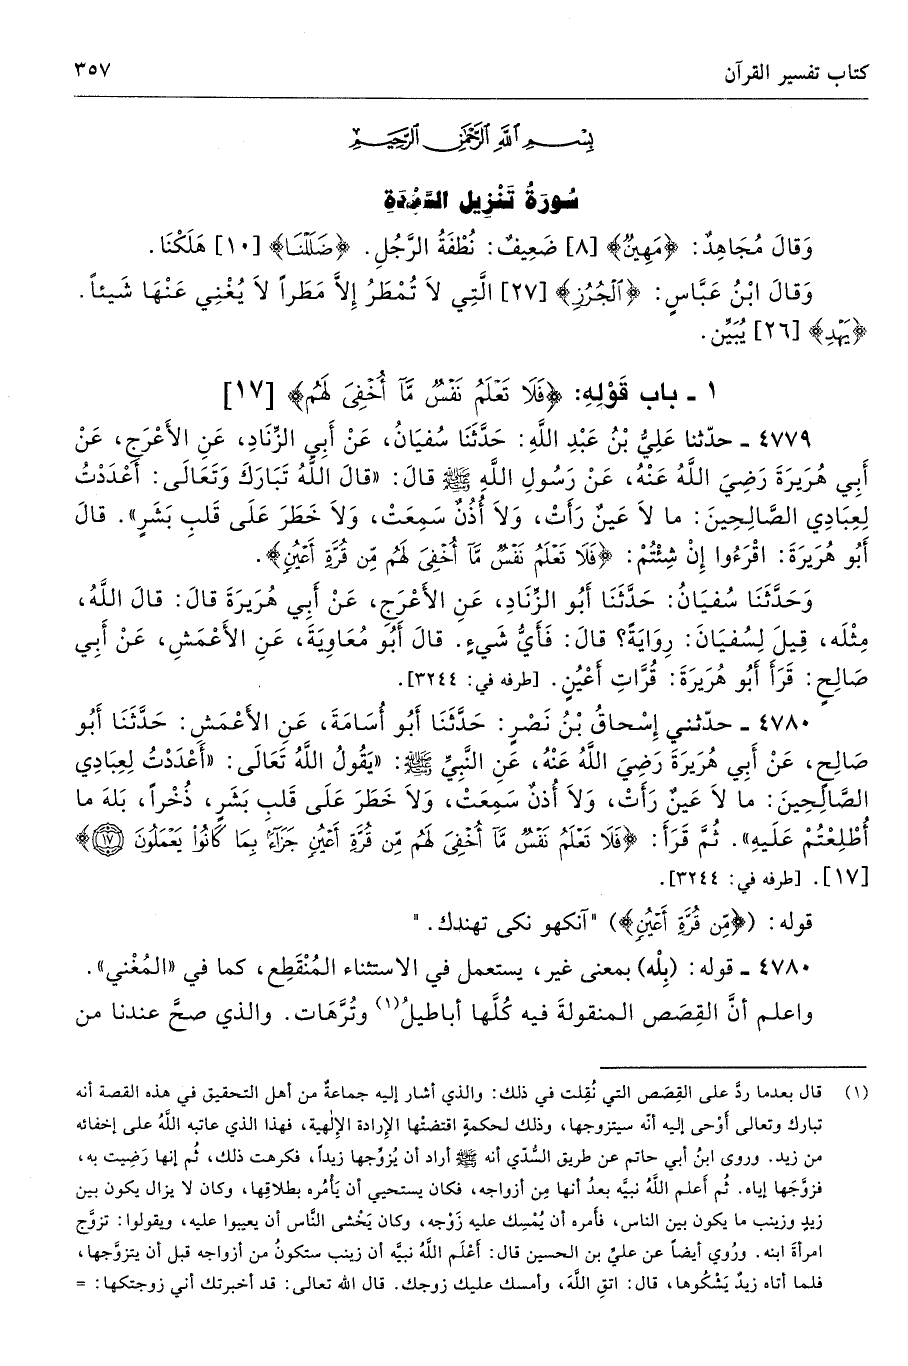 كتاب تفسير القرآن ٣٥٧
بِسْمِ اللَّهِ الرَّحْمَنِ الرَّحِيمِ
سُورَةُ تَنْزِيل السَّجْدَةِ
وَقالَ مُجَاهِدٌ: ﴿مَهِينٌ﴾ [٨] ضَعِيفٌ: نُطْفَةُ الرَّجُلِ. ﴿ضَلَلْنَا﴾ [١٠] هَلَكْنَا.
وَقالَ ابْنُ عَبَّاسٍ: ﴿ٱلْجُرُزِ﴾ [٢٧] الَّتِي لاَ تُمْطَرُ إِلاَّ مَطَراً لاَ يُغْنِي عَنْهَا شَيئاً.
﴿يَهْدِ﴾ [٢٦] يُبَيِّن.
١ ـ باب قَوْلِهِ: ﴿فَلَا تَعْلَمُ نَفْسٌ مَّآ أُخْفِىَ لَهُم﴾ [١٧]
٤٧٧٩ ـ حدّثنا عَلِيُّ بْنُ عَبْدِ اللَّهِ: حَدَّثَنَا سُفيَانُ، عَنْ أَبِي الزِّنَادِ، عَنِ الأَعْرَجِ، عَنْ
أَبِي هُرَيرَةَ رَضِيَ اللَّهُ عَنْهُ، عَنْ رَسُولِ اللَّهِ ﷺ قالَ: «قالَ اللَّهُ تَبَارَكَ وَتَعَالَى: أَعْدَدْتُ
لِعِبَادِي الصَّالِحِينَ: ما لاَ عَينٌ رَأَتْ، وَلاَ أُذُنٌ سَمِعَتْ، وَلاَ خَطَرَ عَلَى قَلبِ بَشَرٍ». قالَ
أَبُو هُرَيرَةَ: اقْرَءُوا إِنْ شِئْتُمْ: ﴿فَلَا تَعْلَمُ نَفْسٌ مَّآ أُخْفِىَ لَهُم مِّن قُرَّةِ أَعْيُنٍ﴾.
وَحَدَّثَنَا سُفيَانُ: حَدَّثَنَا أَبُو الزِّنَادِ، عَنِ الأَعْرَجِ، عَنْ أَبِي هُرَيرَةَ قالَ: قالَ اللَّهُ،
مِثْلَه، قِيلَ لِسُفيَانَ: رِوَايَةً؟ قالَ: فَأَيُّ شَيءٍ. قالَ أَبُو مُعَاوِيَةَ، عَنِ الأَعْمَشِ، عَنْ أَبِي
صَالِحٍ: قَرَأَ أَبُو هُرَيرَةَ: قُرَّاتِ أَعْيُنٍ. [طرفه في: ٣٢٤٤].
٤٧٨٠ ـ حدّثني إِسْحاقُ بْنُ نَصْرٍ: حَدَّثَنَا أَبُو أُسَامَةَ، عَنِ الأَعْمَشِ: حَدَّثَنَا أَبُو
صَالِحٍ، عَنْ أَبِي هُرَيرَةَ رَضِيَ اللَّهُ عَنْهُ، عَنِ النَّبِيِّ ﷺ: «يَقُولُ اللَّهُ تَعَالَى: «أَعْدَدْتُ لِعِبَادِي
الصَّالِحِينَ: ما لاَ عَينٌ رَأَتْ، وَلاَ أُذنٌ سَمِعَتْ، وَلاَ خَطَرَ عَلَى قَلبِ بَشَرٍ، ذُخْراً، بَلهَ ما
أُطْلِعْتُمْ عَلَيهِ». ثُمَّ قَرَأَ: ﴿فَلَا تَعْلَمُ نَفْسٌ مَّآ أُخْفِىَ لَهُم مِّن قُرَّةِ أَعْيُنٍ جَزَآءً بِمَا كَانُوا۟ يَعْمَلُونَ ١٧﴾
[١٧]. [طرفه في: ٣٢٤٤].
قوله: (﴿مِّن قُرَّةِ أَعْيُنٍ﴾) "آنكهو نكى تهندك."
٤٧٨٠ ـ قوله: (بِلْه) بمعنى غير، يستعمل في الاستثناء المُنْقَطِع، كما في «المُغْني».
واعلم أنَّ القِصَص المنقولةَ فيه كُلَّها أباطيلُ(١) وتُرَّهَات. والذي صحَّ عندنا من
(١) قال بعدما ردَّ على القِصَص التي نُقِلت في ذلك: والذي أشار إليه جماعةٌ من أهل التحقيق في هذه القصة أنه
تبارك وتعالى أَوْحى إليه أنّه سيتزوجها، وذلك لحكمةٍ اقتضتْها الإِرادة الإِلٰهية، فهذا الذي عاتبه اللَّهُ على إخفائه
من زيد. وروى ابنُ أبي حاتم عن طريق السُّدّي أنه ﷺ أراد أن يُزوِّجها زيداً، فكرهت ذلك، ثُم إنها رَضِيت به،
فزوَّجَها إياه. ثُم أَعلم اللَّهُ نبيَّه بعدُ أنها مِن أزواجه، فكان يستحيي أن يَأْمُره بطلاقِها، وكان لا يزال يكون بين
زيدٍ وزينب ما يكون بين الناس، فأمره أن يُمْسِك عليه زَوْجه، وكان يَخْشى النَّاس أن يعيبوا عليه، ويقولوا: تزوَّج
امرأةَ ابنه. ورُوي أيضاً عن عليِّ بن الحسين قال: أَعْلَم اللَّهُ نبيَّه أن زينب ستكونُ من أزواجه قبل أن يتزوَّجها،
فلما أتاه زيدٌ يَشْكُوها، قال: اتقِ اللَّهَ، وأمسك عليك زوجك. قال الله تعالى: قد أخبرتك أني زوجتكها: =